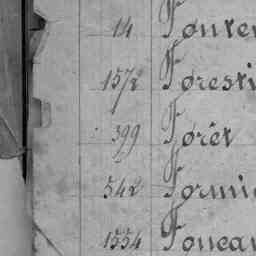 14 Fonten
1572 Foresti
399 Forêt
542 Formi
1554 Foucau